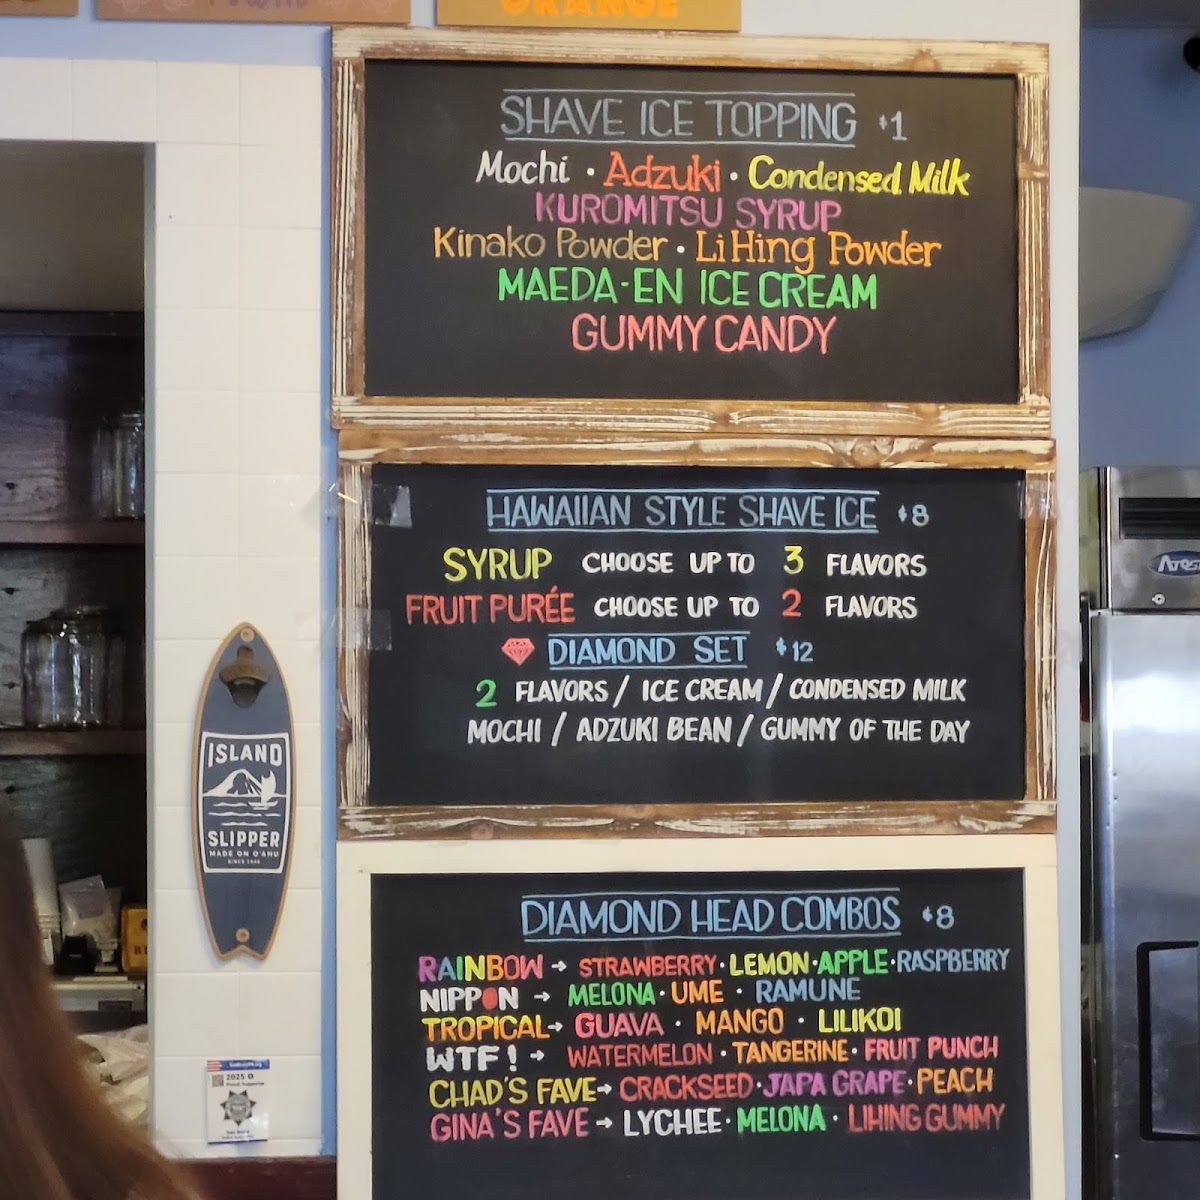 ORANGE
SHAVE ICE TOPPING $1
Mochi · Adzuki · Condensed Milk
KUROMITSU SYRUP
Kinako Powder · Li Hing Powder
MAEDA-EN ICE CREAM
GUMMY CANDY
HAWAIIAN STYLE SHAVE ICE $8
SYRUP CHOOSE UP TO 3 FLAVORS
FRUIT PURÉE CHOOSE UP TO 2 FLAVORS
DIAMOND SET $12
2 FLAVORS / ICE CREAM / CONDENSED MILK
MOCHI / ADZUKI BEAN / GUMMY OF THE DAY
DIAMOND HEAD COMBOS $8
RAINBOW → STRAWBERRY · LEMON · APPLE · RASPBERRY
NIPPON → MELONA · UME · RAMUNE
TROPICAL → GUAVA · MANGO · LILIKOI
WTF! → WATERMELON · TANGERINE · FRUIT PUNCH
CHAD'S FAVE → CRACKSEED · JAPA GRAPE · PEACH
GINA'S FAVE → LYCHEE · MELONA · LIHING GUMMY
ISLAND
SLIPPER
MADE ON O'AHU
SINCE 1946
2025
Proud Supporter